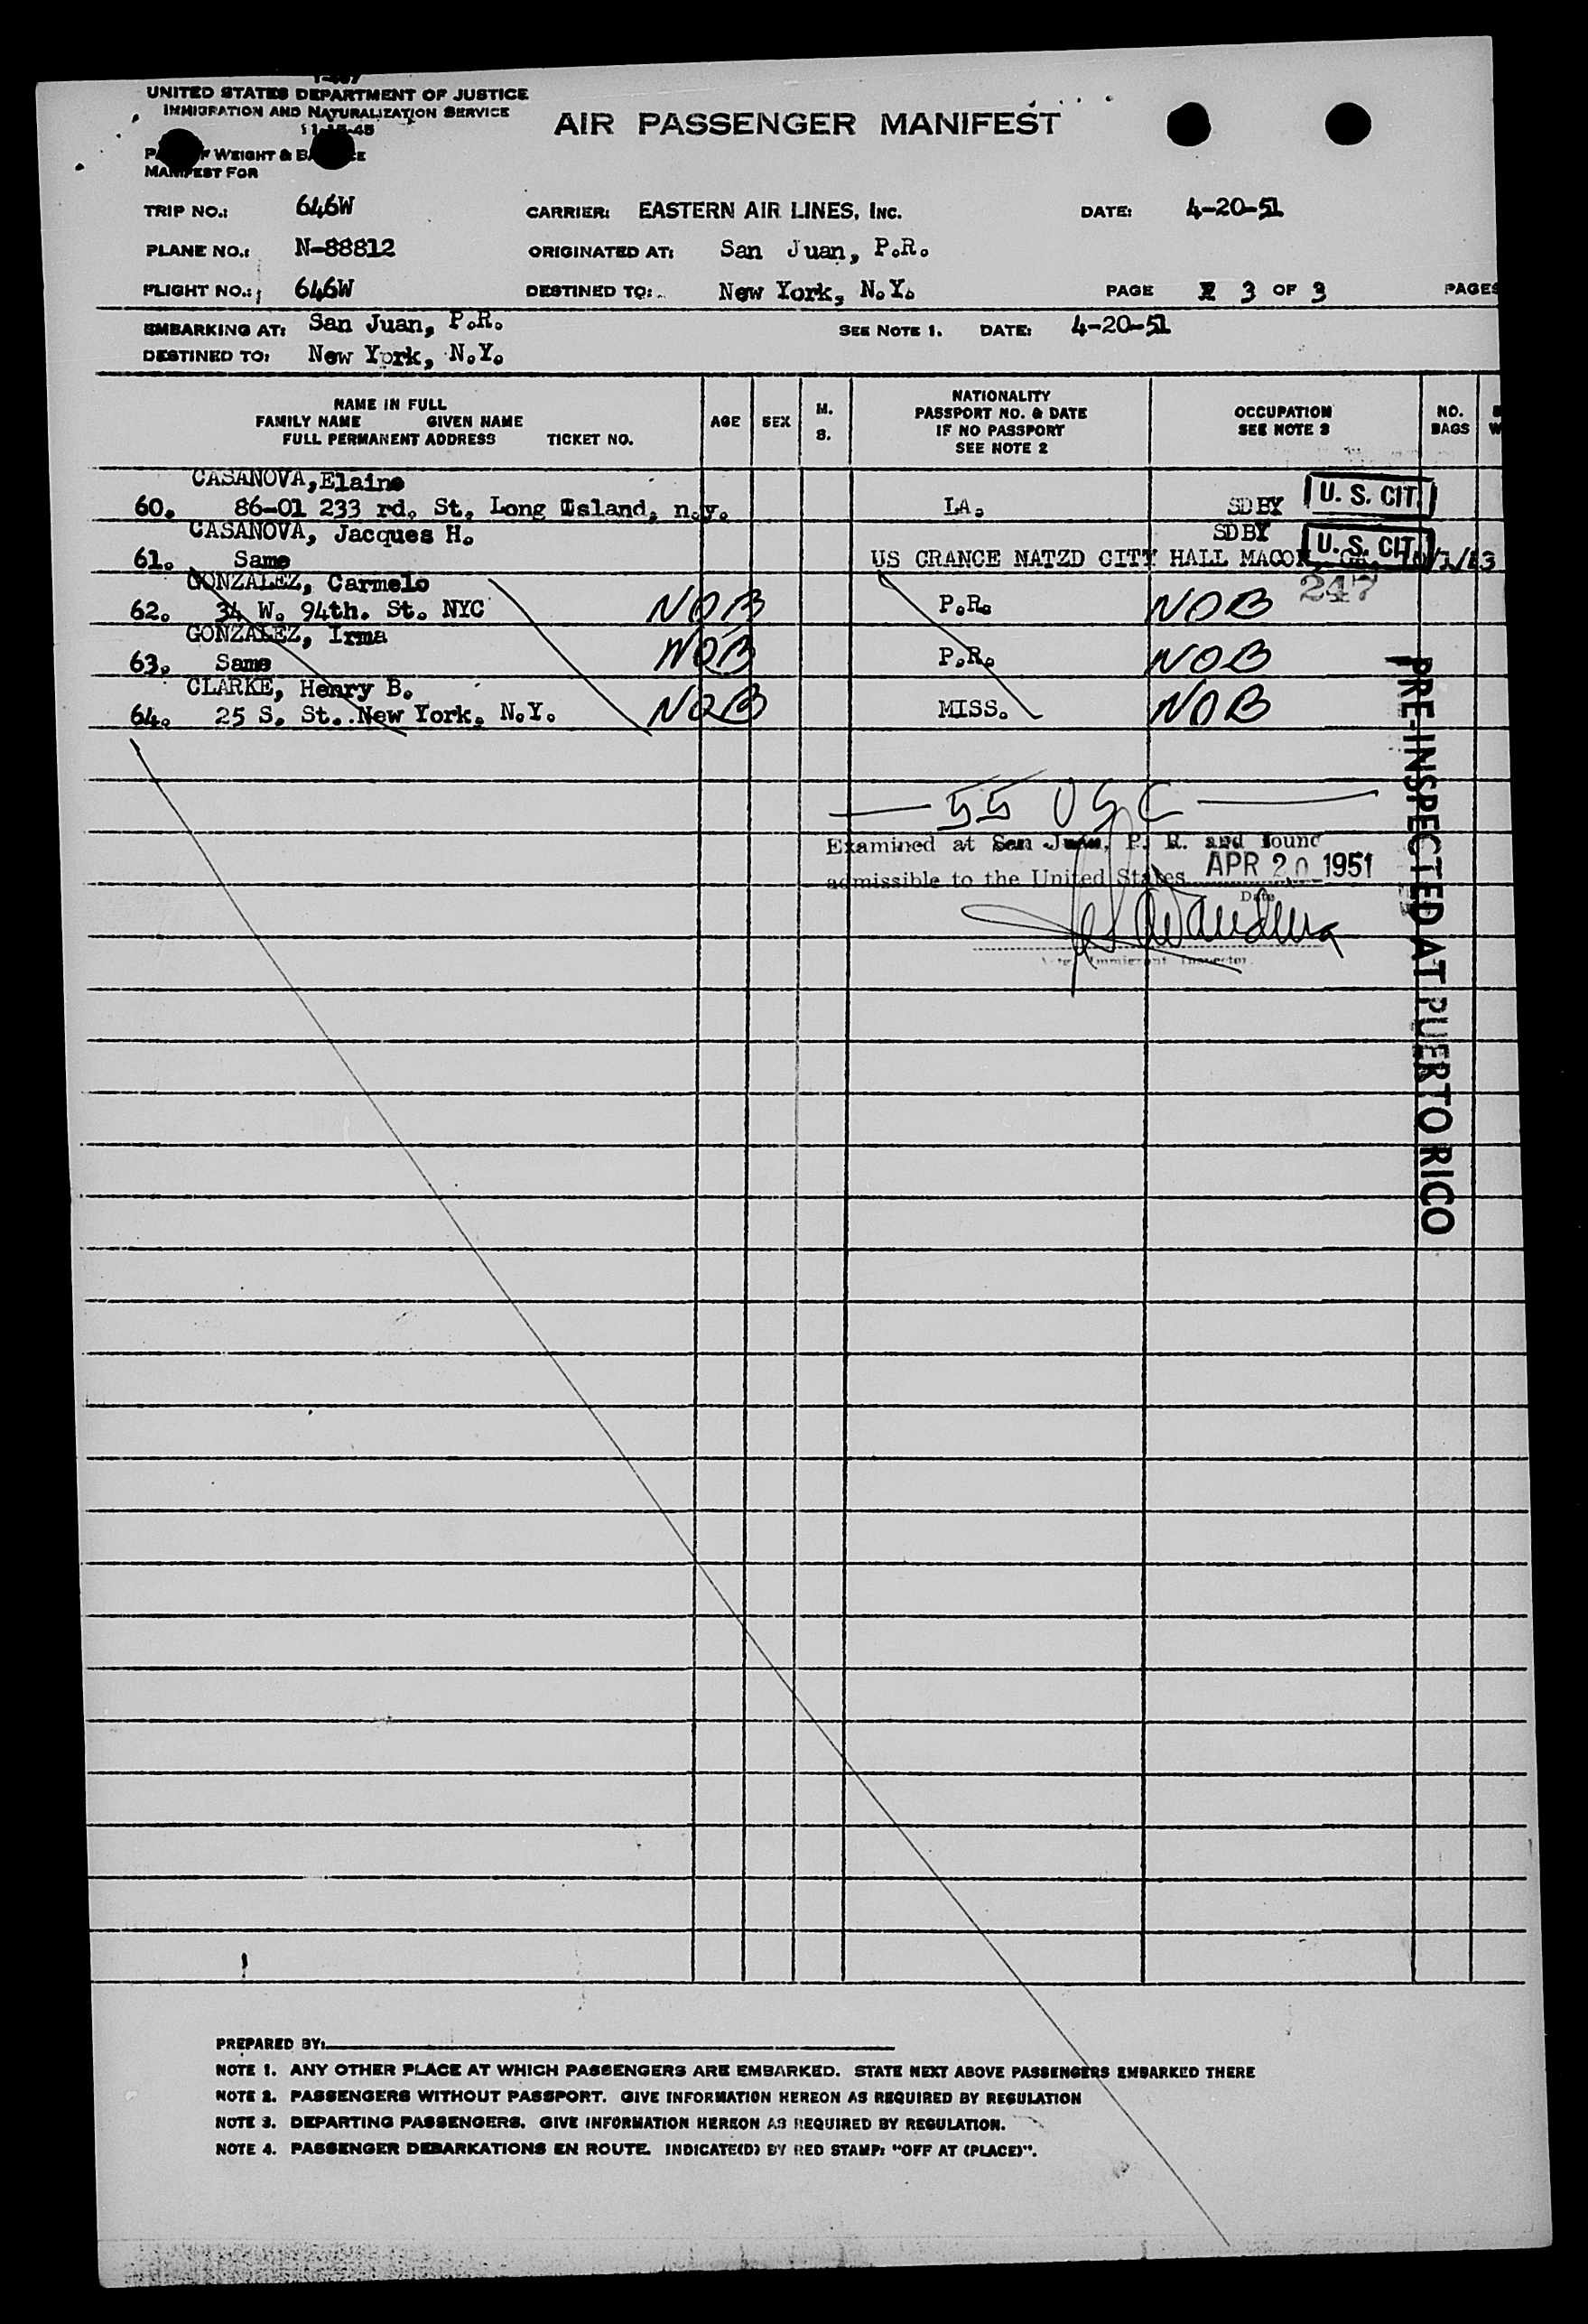 I-467
UNITED STATES DEPARTMENT OF JUSTICE
IMMIGRATION AND NATURALIZATION SERVICE
AIR PASSENGER MANIFEST
WEIGHT &
MANIFEST FOR
TRIP NO.: 646W CARRIER: EASTERN AIR LINES, INC. DATE: 4-20-51
PLANE NO.: N-88812 ORIGINATED AT: San Juan, P.R.
FLIGHT NO.: 646W DESTINED TO: New York, N.Y. PAGE 3 OF 3 PAGES
EMBARKING AT: San Juan, P.R. SEE NOTE 1. DATE: 4-20-51
DESTINED TO: New York, N.Y.
NAME IN FULL
FAMILY NAME GIVEN NAME
FULL PERMANENT ADDRESS TICKET NO.
AGE
SEX
M.
S.
NATIONALITY
PASSPORT NO. & DATE
IF NO PASSPORT
SEE NOTE 2
OCCUPATION
SEE NOTE 3
NO.
BAGS
CASANOVA, Elaine
60. 86-01 233 rd. St, Long Island, n.y. LA. SDBY U. S. CIT
CASANOVA, Jacques H. SDBY
61. Same US CRANCE NATZD CITY HALL MACON U. S. CIT
GONZALEZ, Carmelo 247
62. 34 W. 94th. St. NYC NOB P.R. NOB
GONZALEZ, Irma
63. Same NOB P.R. NOB
CLARKE, Henry B.
64. 25 S. St. New York, N.Y. NOB MISS. NOB
55 USC
Examined at San Juan, P. R. and found
admissible to the United States APR 20 1951
Date
Immigrant Inspector
PRE-INSPECTED AT PUERTO RICO
PREPARED BY:
NOTE 1. ANY OTHER PLACE AT WHICH PASSENGERS ARE EMBARKED. STATE NEXT ABOVE PASSENGERS EMBARKED THERE
NOTE 2. PASSENGERS WITHOUT PASSPORT. GIVE INFORMATION HEREON AS REQUIRED BY REGULATION
NOTE 3. DEPARTING PASSENGERS. GIVE INFORMATION HEREON AS REQUIRED BY REGULATION.
NOTE 4. PASSENGER DEBARKATIONS EN ROUTE. INDICATE(D) BY RED STAMP: "OFF AT (PLACE)".